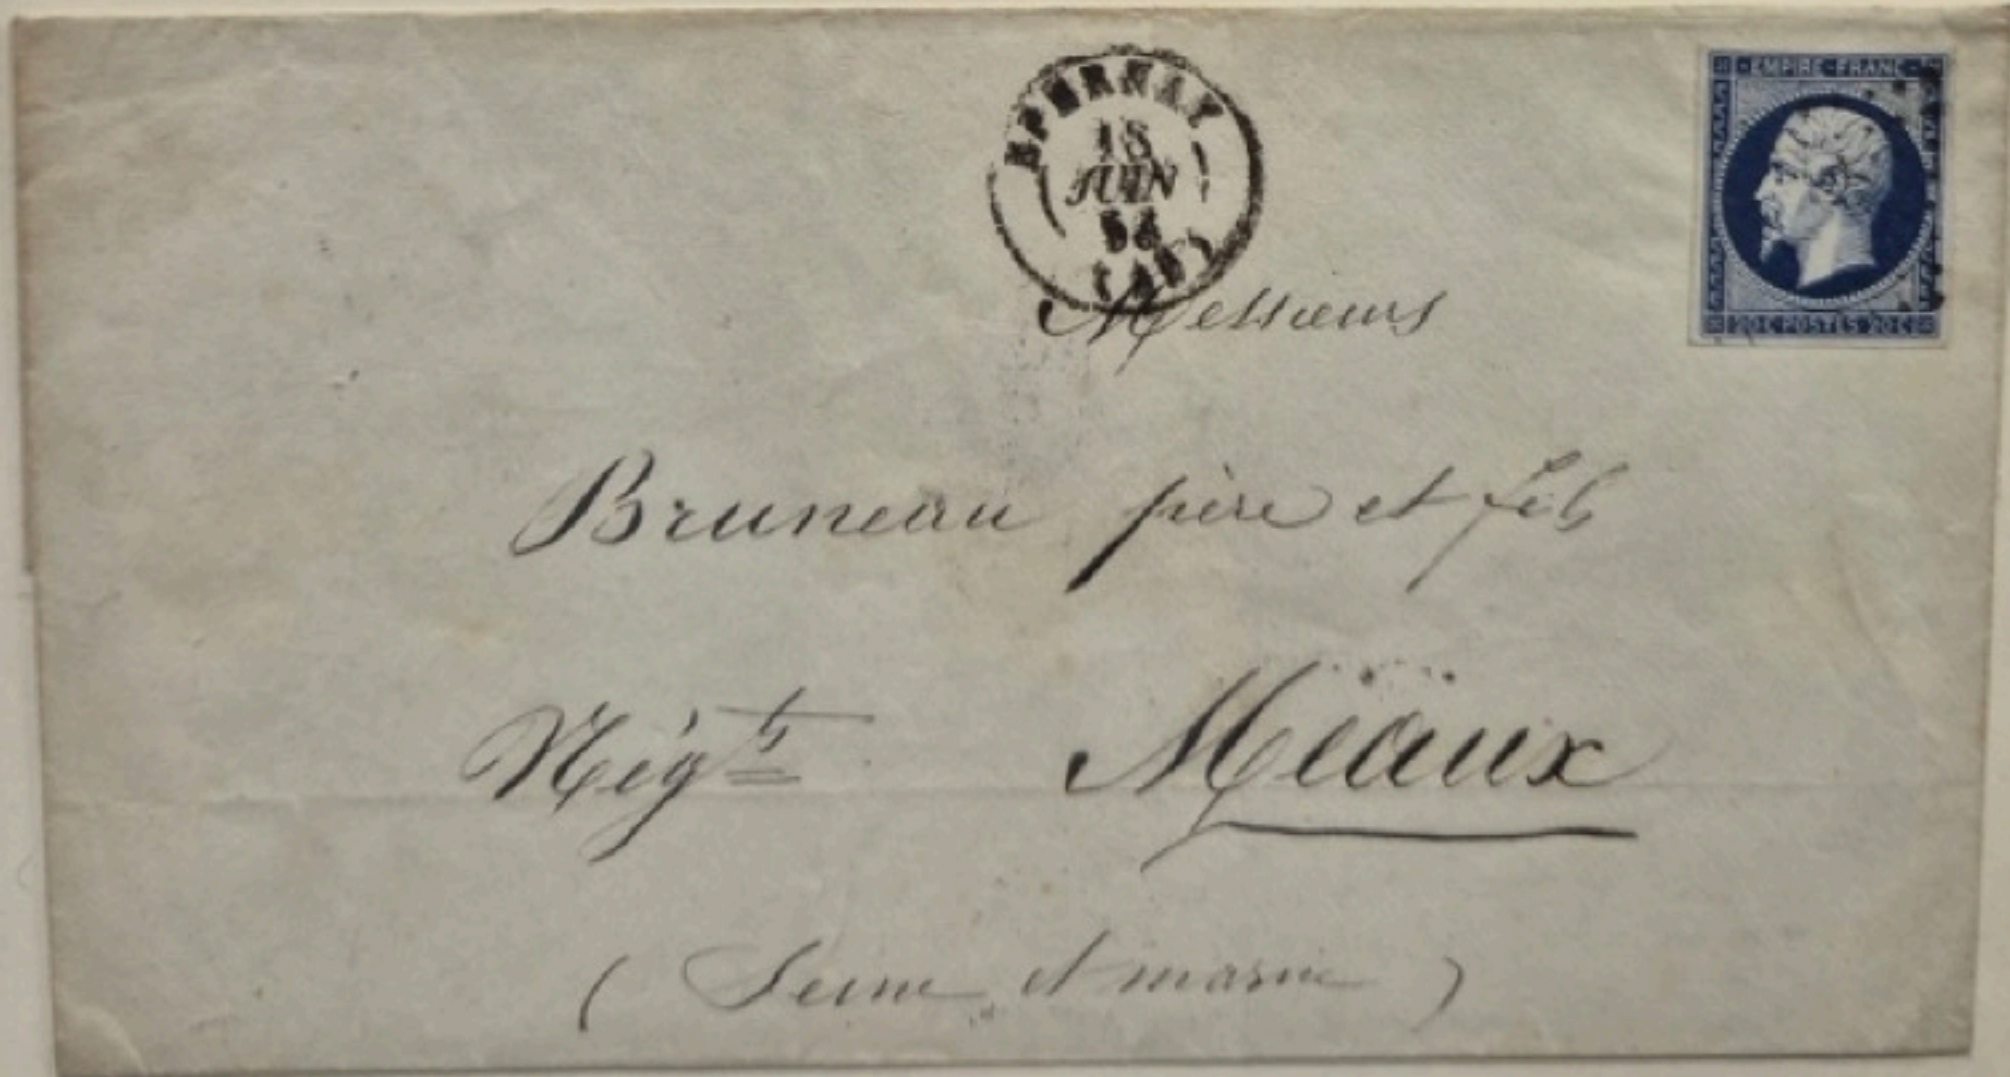 EPERNAY
18
JUIN
(49)
EMPIRE-FRANC-
20C POSTES 20C
Messieurs
Bruneau père et fils
Négts Meaux
(Seine et marne)